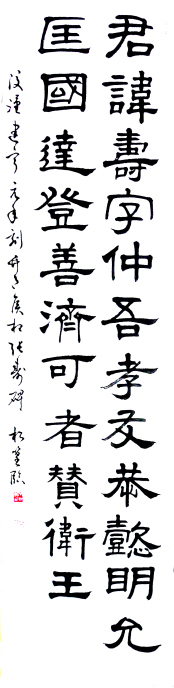 君諱壽字仲吾孝友恭懿明允
匡國達登善濟可者贊衛王
漢建寧元年刻竹邑侯相張壽碑 松蓭臨